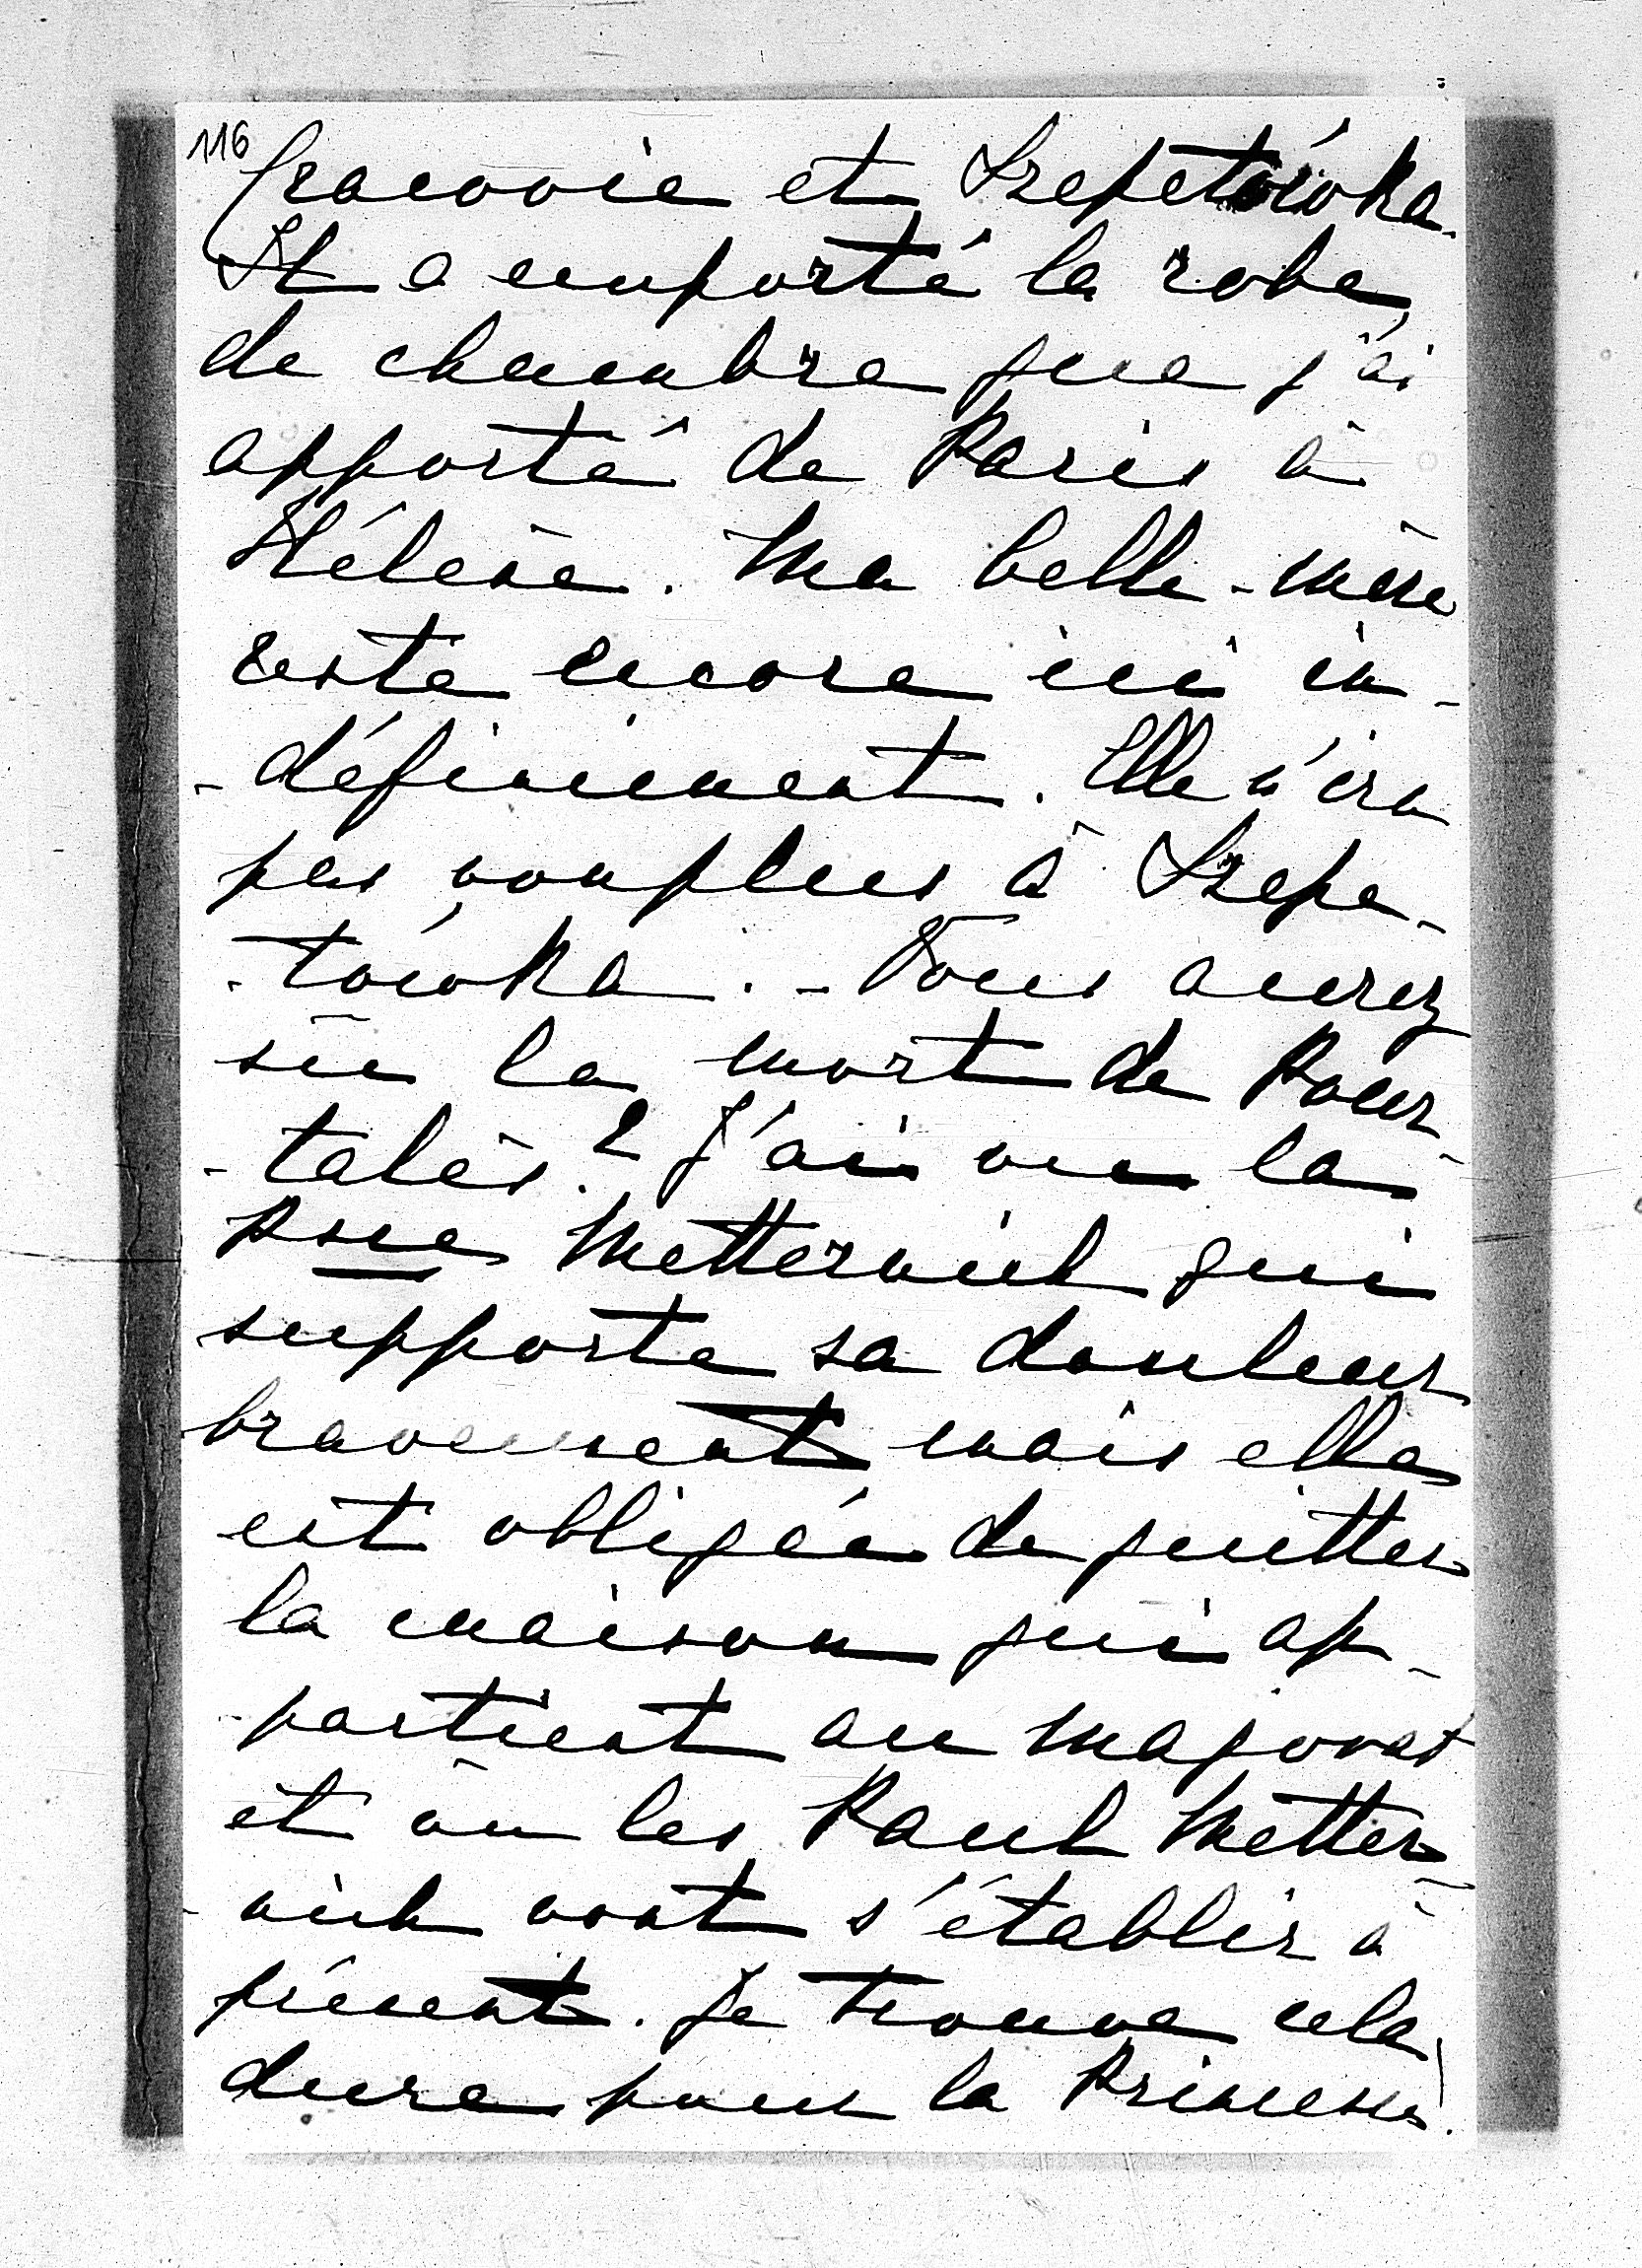 116
Cracovie et Szepetówka.
Il a emporté la robe
de chambre que j'ai
apporté de Paris à
Hélène. Ma belle-mère
reste encore ici in-
-définiment. Elle n'ira
pas non plus à Szepe-
-tówka. - Vous aurez
sû la mort de Pour-
-talès? J'ai vu la
Psse Metternich qui
supporte sa douleur
bravement mais elle
est obligée de quitter
la maison qui ap-
-partient au majorat
et où les Paul Metter-
-nich vont s'établir à
présent. Je trouve cela
dure pour la Princesse.